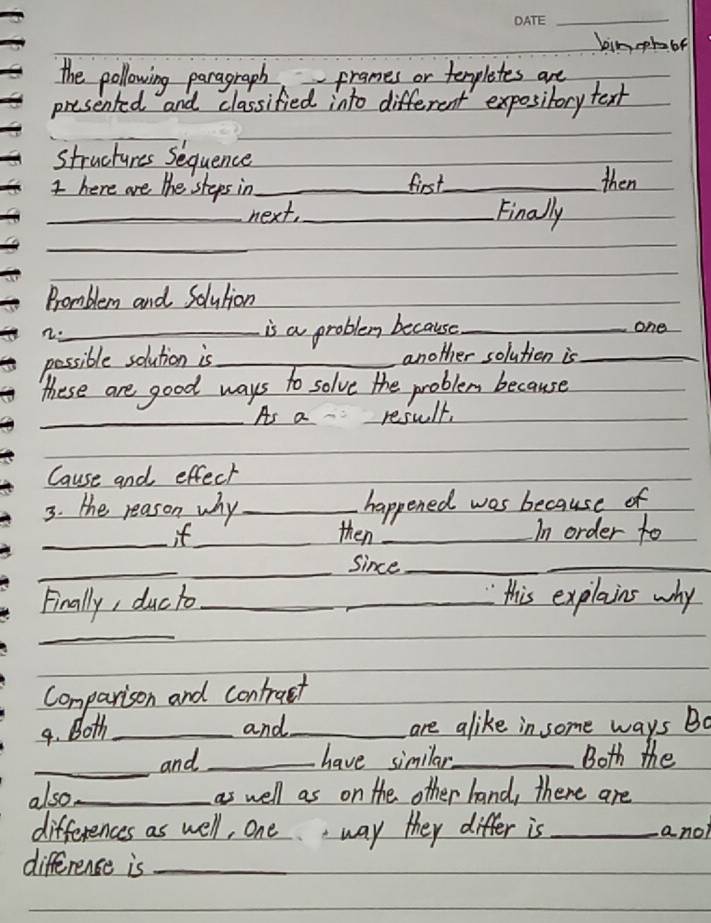 DATE
the pollowing paragraph frames or templetes are
presented and classified into different expository text
Structures Sequence
1 here are the steps in ________ first ________ then
________ next. ________ Finally
________
Bromblem and Solution
2. ________ is a problem because ________ one
possible solution is ________ another solution is ________
these are good ways to solve the problem because
________ As a result.
Cause and effect
3. the reason why ________ happened was because of
________ if ________ then ________ In order to
________ ________ since ________ ________
Finally, duc to ________ ________ this explains why
________
Comparison and contract
4. Both ________ and ________ are alike in some ways Bo
________ and ________ have similar ________ Both the
also ________ as well as on the other hand, there are
differences as well, One way they differ is ________ anot
differense is ________